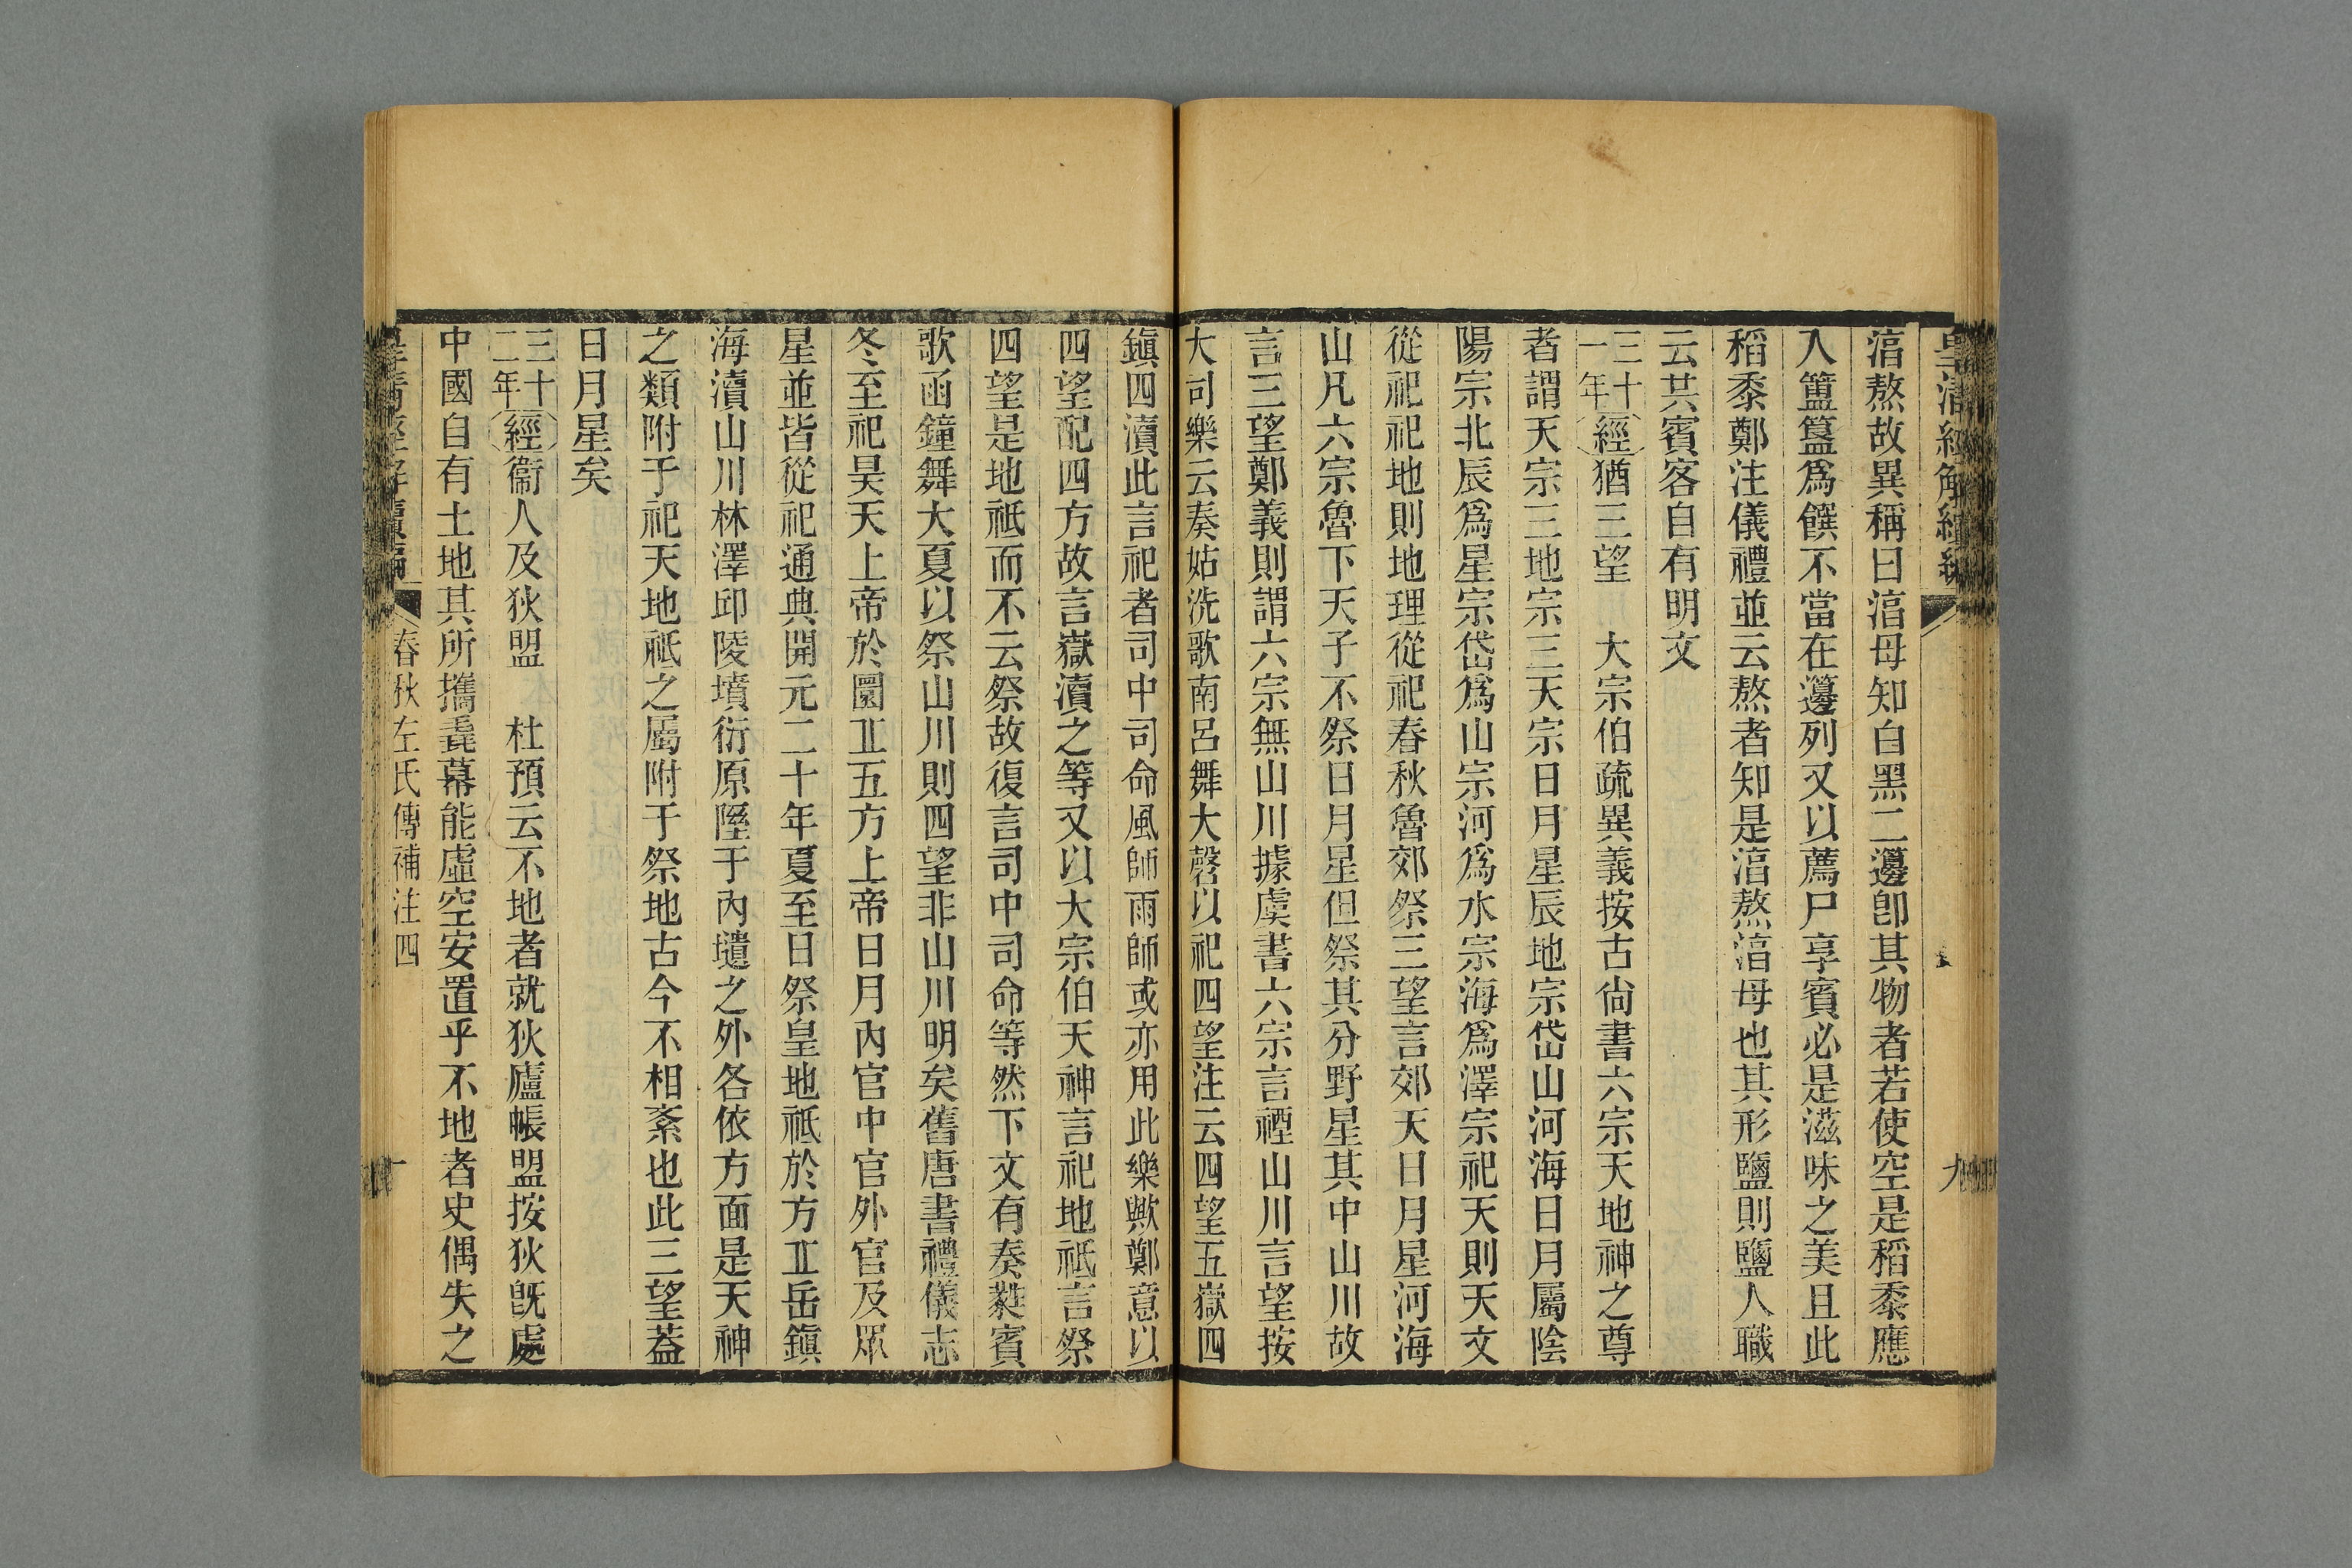 皇清經解續編
九
湻熬故異稱曰湻母知白黑二籩卽其物者若使空是稻黍應
入簠簋爲饌不當在籩列又以薦尸享賓必是滋味之美且此
稻黍鄭注儀禮並云熬者知是湻熬湻母也其形鹽則鹽人職
云共賓客自有明文
三十一年經猶三望　大宗伯疏異義按古尙書六宗天地神之尊
者謂天宗三地宗三天宗日月星辰地宗岱山河海日月屬陰
陽宗北辰爲星宗岱爲山宗河爲水宗海爲澤宗祀天則天文
從祀祀地則地理從祀春秋魯郊祭三望言郊天日月星河海
山凡六宗魯下天子不祭日月星但祭其分野星其中山川故
言三望鄭義則謂六宗無山川據虞書六宗言禋山川言望按
大司樂云奏姑洗歌南呂舞大磬以祀四望注云四望五嶽四
鎭四瀆此言祀者司中司命風師雨師或亦用此樂歟鄭意以
四望配四方故言嶽瀆之等又以大宗伯天神言祀地祇言祭
四望是地祇而不云祭故復言司中司命等然下文有奏蕤賓
歌函鐘舞大夏以祭山川則四望非山川明矣舊唐書禮儀志
冬至祀昊天上帝於圜丘五方上帝日月內官中官外官及眾
星並皆從祀通典開元二十年夏至日祭皇地祇於方丘岳鎭
海瀆山川林澤邱陵墳衍原隰于內壝之外各依方面是天神
之類附于祀天地祇之屬附于祭地古今不相紊也此三望葢
日月星矣
三十二年經衞人及狄盟　杜預云不地者就狄廬帳盟按狄旣處
中國自有土地其所攜毳幕能虛空安置乎不地者史偶失之
皇清經解續編
春秋左氏傳補注四
十